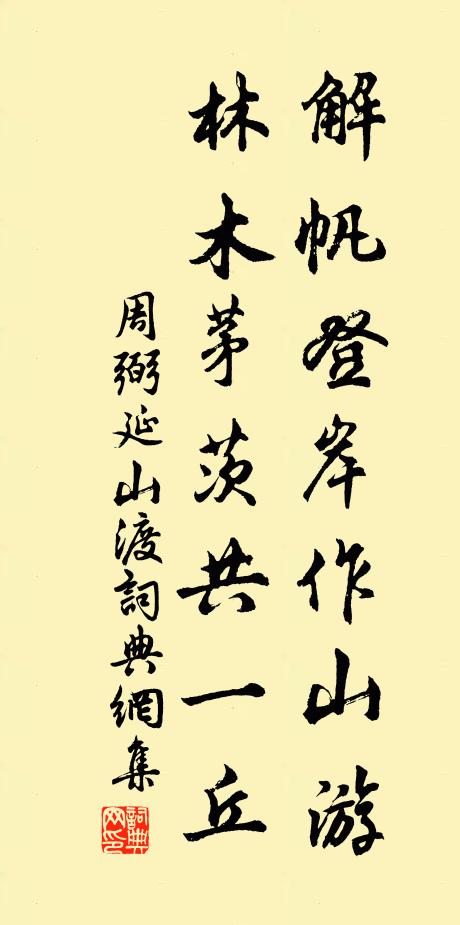 解帆登岸作山游
林木茅茨共一丘
周弼延山渡詞典網集
詞典网印